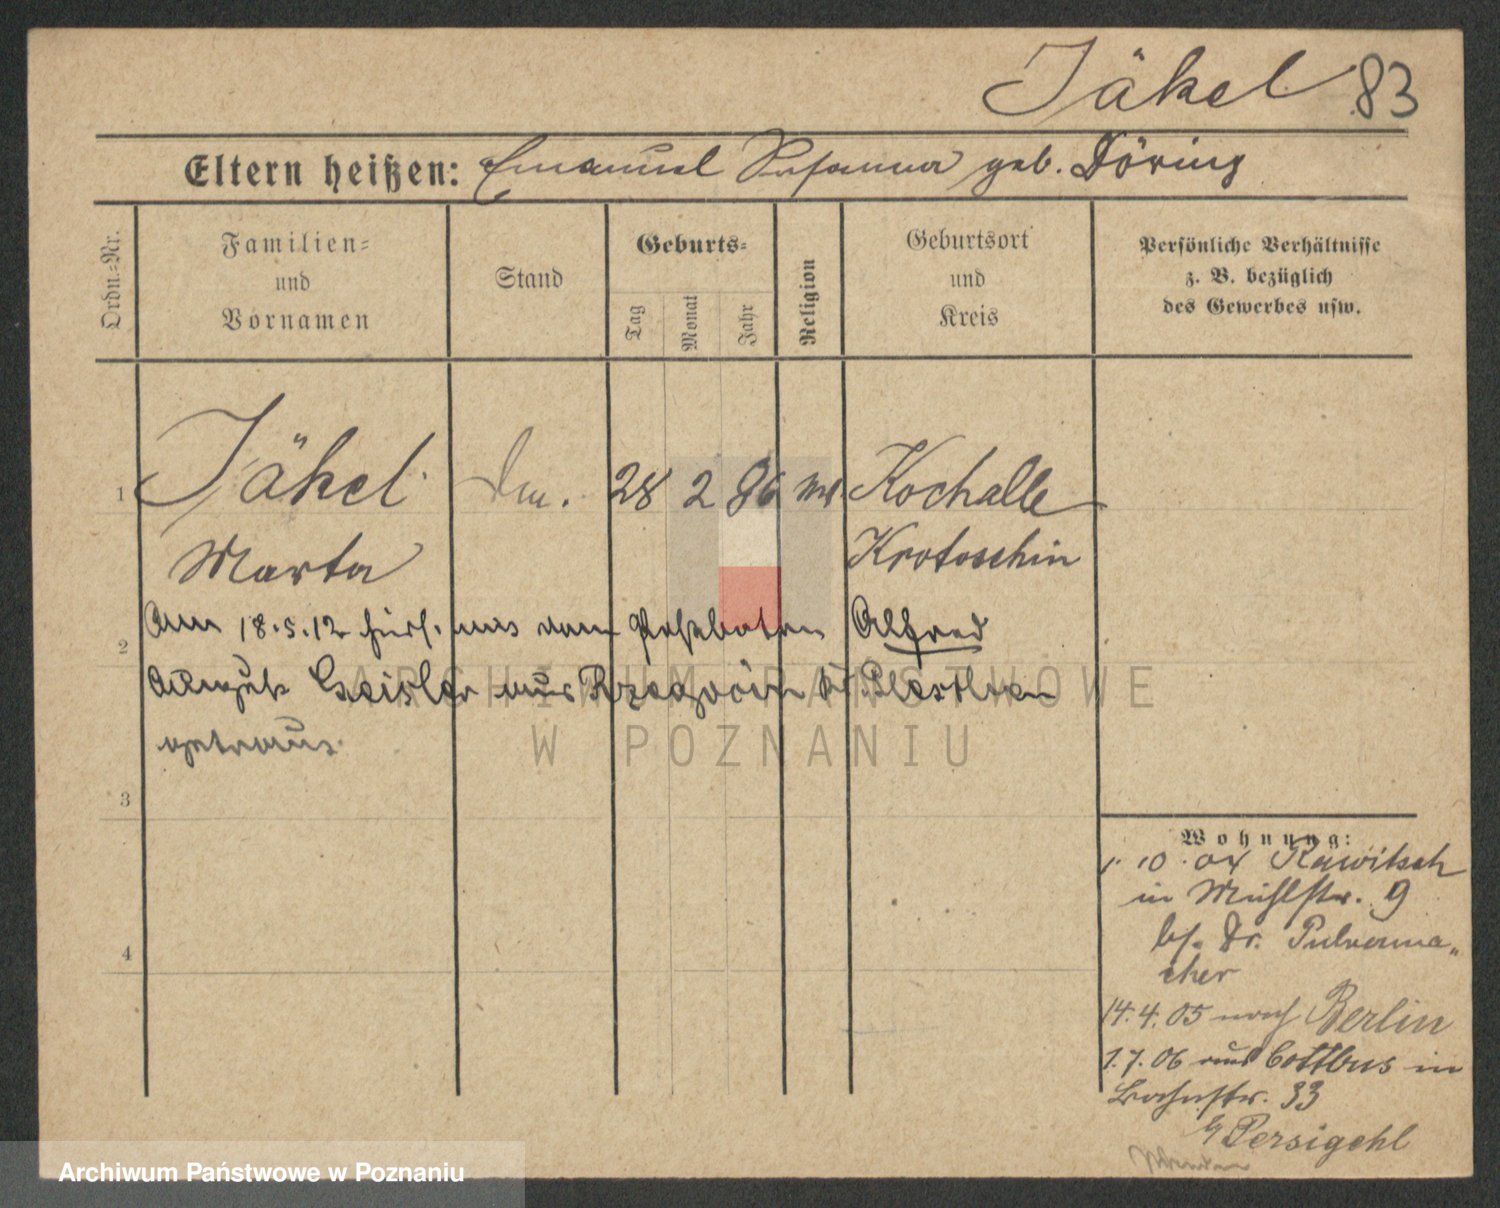 Jäkel 83
Eltern heißen: Emanuel Susanna geb. Döring
Ordn.=Nr.
Familien=
und
Vornamen
Stand
Geburts=
Tag
Monat
Jahr
Religion
Geburtsort
und
Kreis
Persönliche Verhältnisse
z. B. bezüglich
des Gewerbes usw.
1 Jäkel 28 2 86 Kochalle
Marta Krotoschin
Am 18.5.12 hier mit dem Postboten Alfred
2
August Geisler aus Kr. Pleschen
getraut.
3
4
Wohnung:
1. 10. 04 Rawitsch
in Mühlstr. 9
bei Dr. Pulverma„
cher
14. 4. 05 nach Berlin
1. 7. 06 aus Cottbus in
Bahnstr. 33
Persigehl
ARCHIWUM PAŃSTWOWE
W POZNANIU
Archiwum Państwowe w Poznaniu